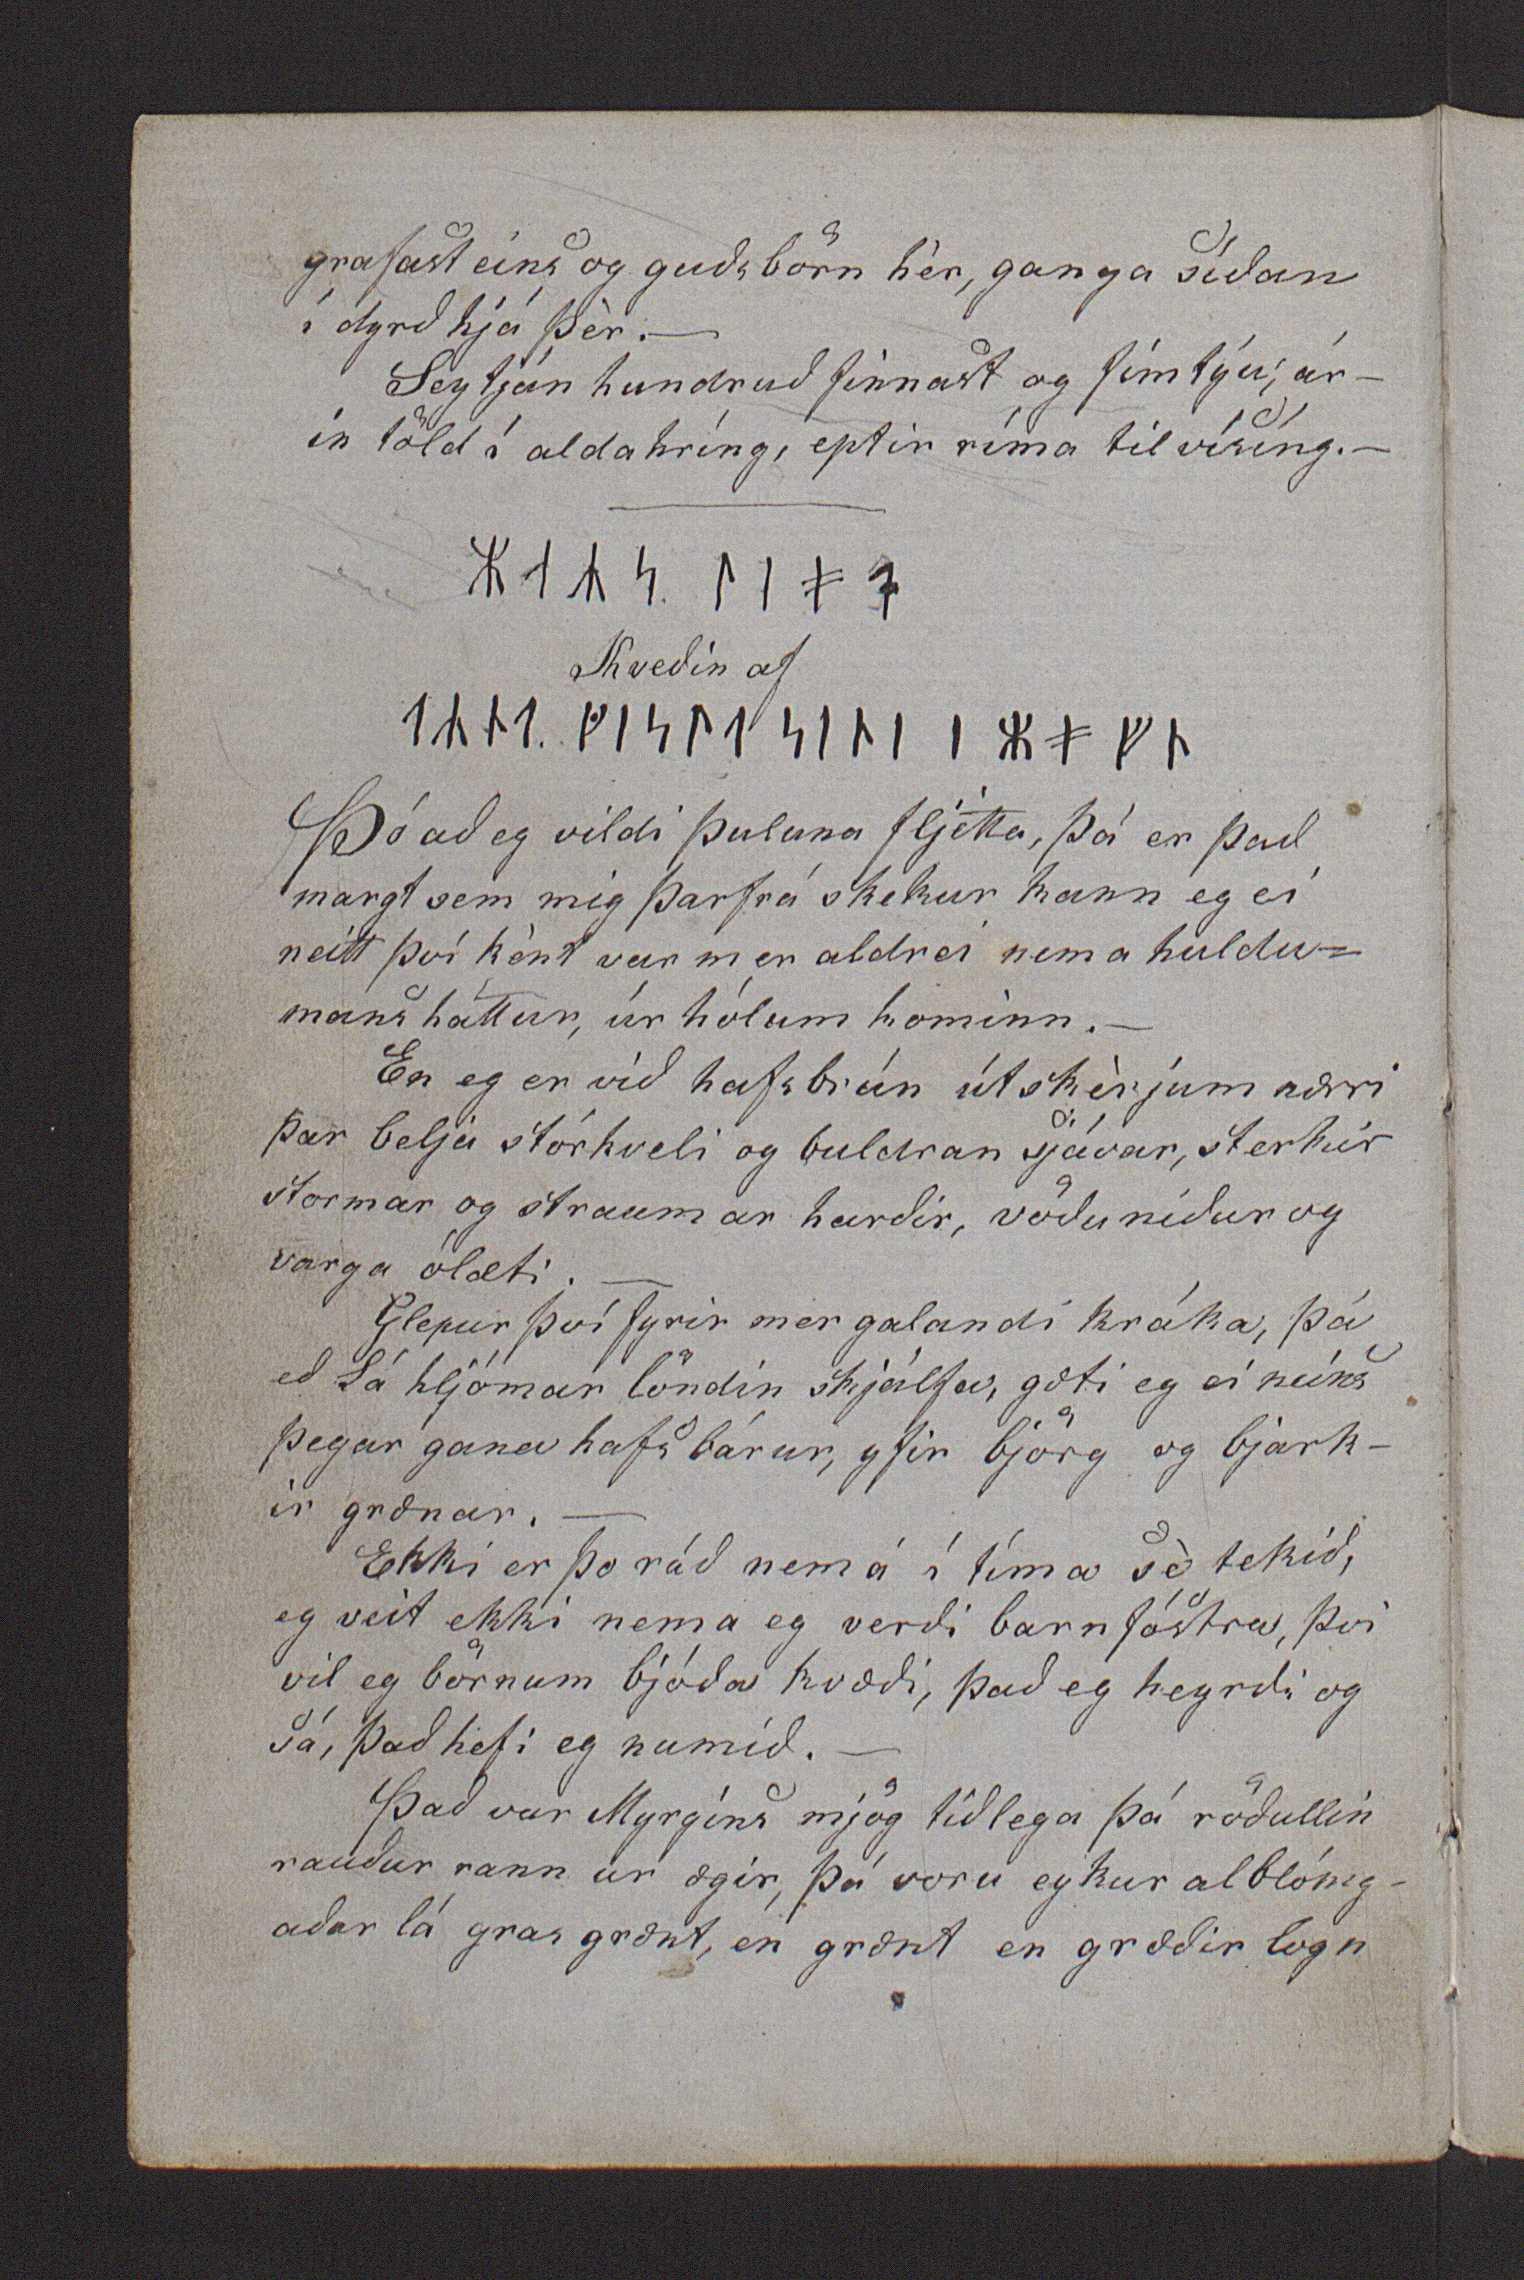 grafast eins og guðsbörn hèr, ganga síðan
í dyrð hjá þèr. —
Seytján hundruð finnast og fimtýu, ár-
in töld í aldahríng, eptir ríma tilvísíng. —
ᛯᛐᛦᛋ. ᛚᛁᚯ
Kveðin af
ᛐᛦᚢᛐ. ᚵᛁᛋᛚᛐᛋᛁᚢᛁ ᛁ ᛯᚯᚠᚢ
Þó að eg vildi þuluna fljétta, þá er það
margt sem mig þarfrá skekur kann eg ei
neitt því kènt var mer aldrei nema huldu=
mans háttur, úr hólum kominn. —
En eg er við hafsbrún útskèrjum nærri
þar belja stórhveli og buldran sjávar, sterkir
stormar og straumar harðir, vöðuniður og
varga ólæti. —
Glepur því fyrir mer galandi kráka, þá
eð Lá hljómar löndin skjálfa, gæti eg ei neins
þegar gana hafsbárur, yfir björg og bjark-
ir grænar. —
Ekki er þo ráð nemá í tíma sè tekið,
eg veit ekki nema eg verði barnfóstra, því
vil eg börnum bjóða kvæði, það eg heyrði og
sá, það hefi eg numið. —
Það var Myrgins mjög tíðlega þá röðullin
rauður rann ur ægir, þá voru eykur alblómg-
aðar lá gras grænt, en grænt en græðir logn